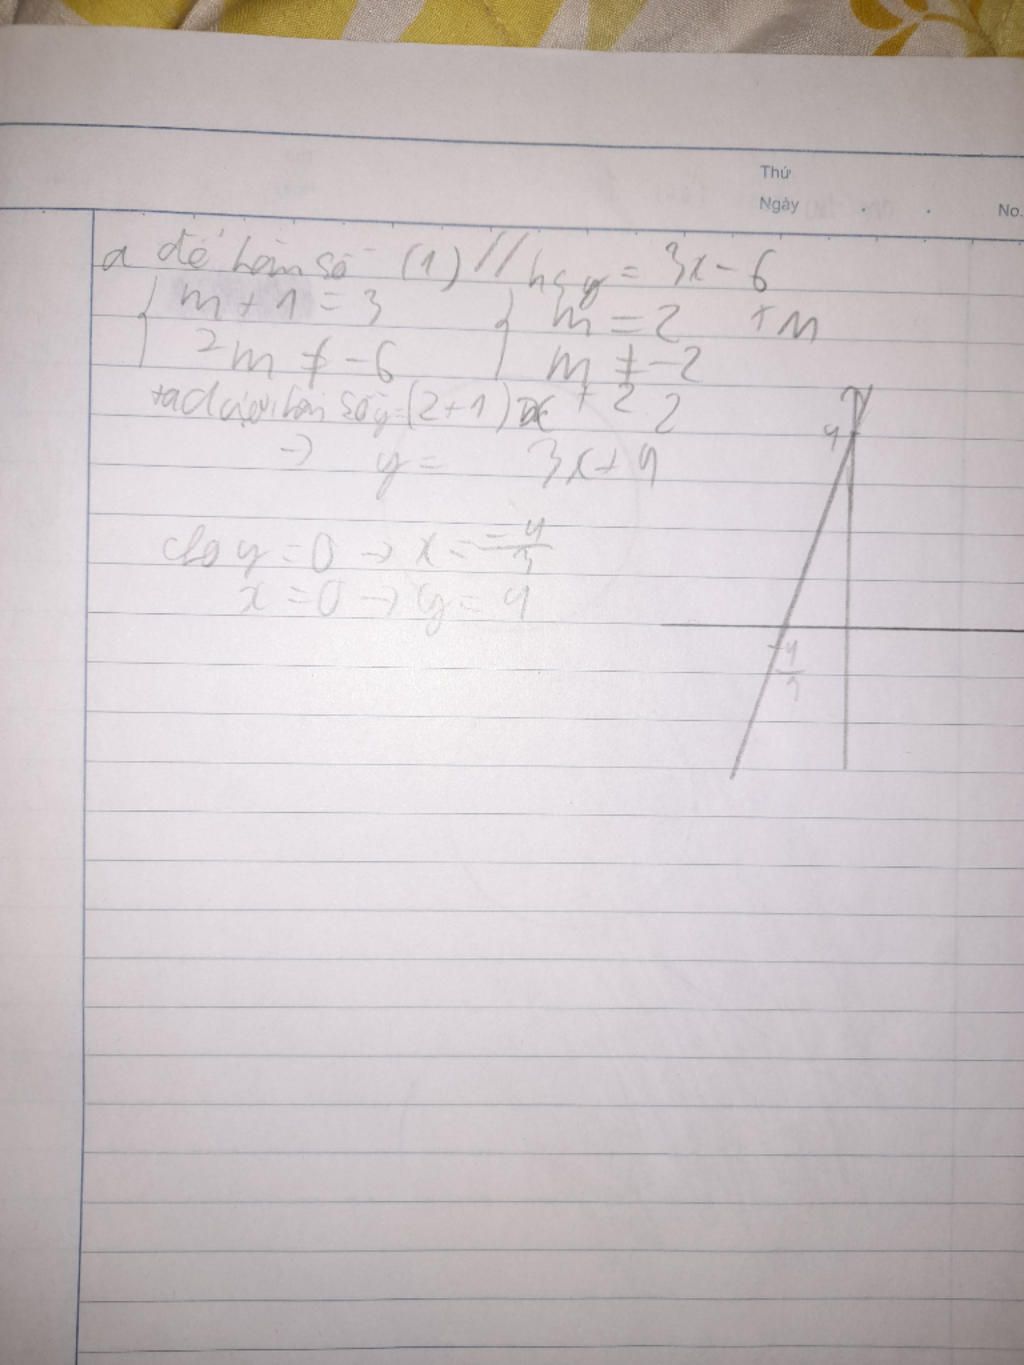 Thứ
Ngày . .
No.
a để hàm số (1) // hs y = 3x - 6
{ m + 1 = 3 { m = 2 + m
2m ≠ -6 m ≠ -2
hàm số y = (2+1)x + 2 2
→ y = 3x + 4
cho y = 0 → x = -4/3
x = 0 → y = 4
y
4
-4/3